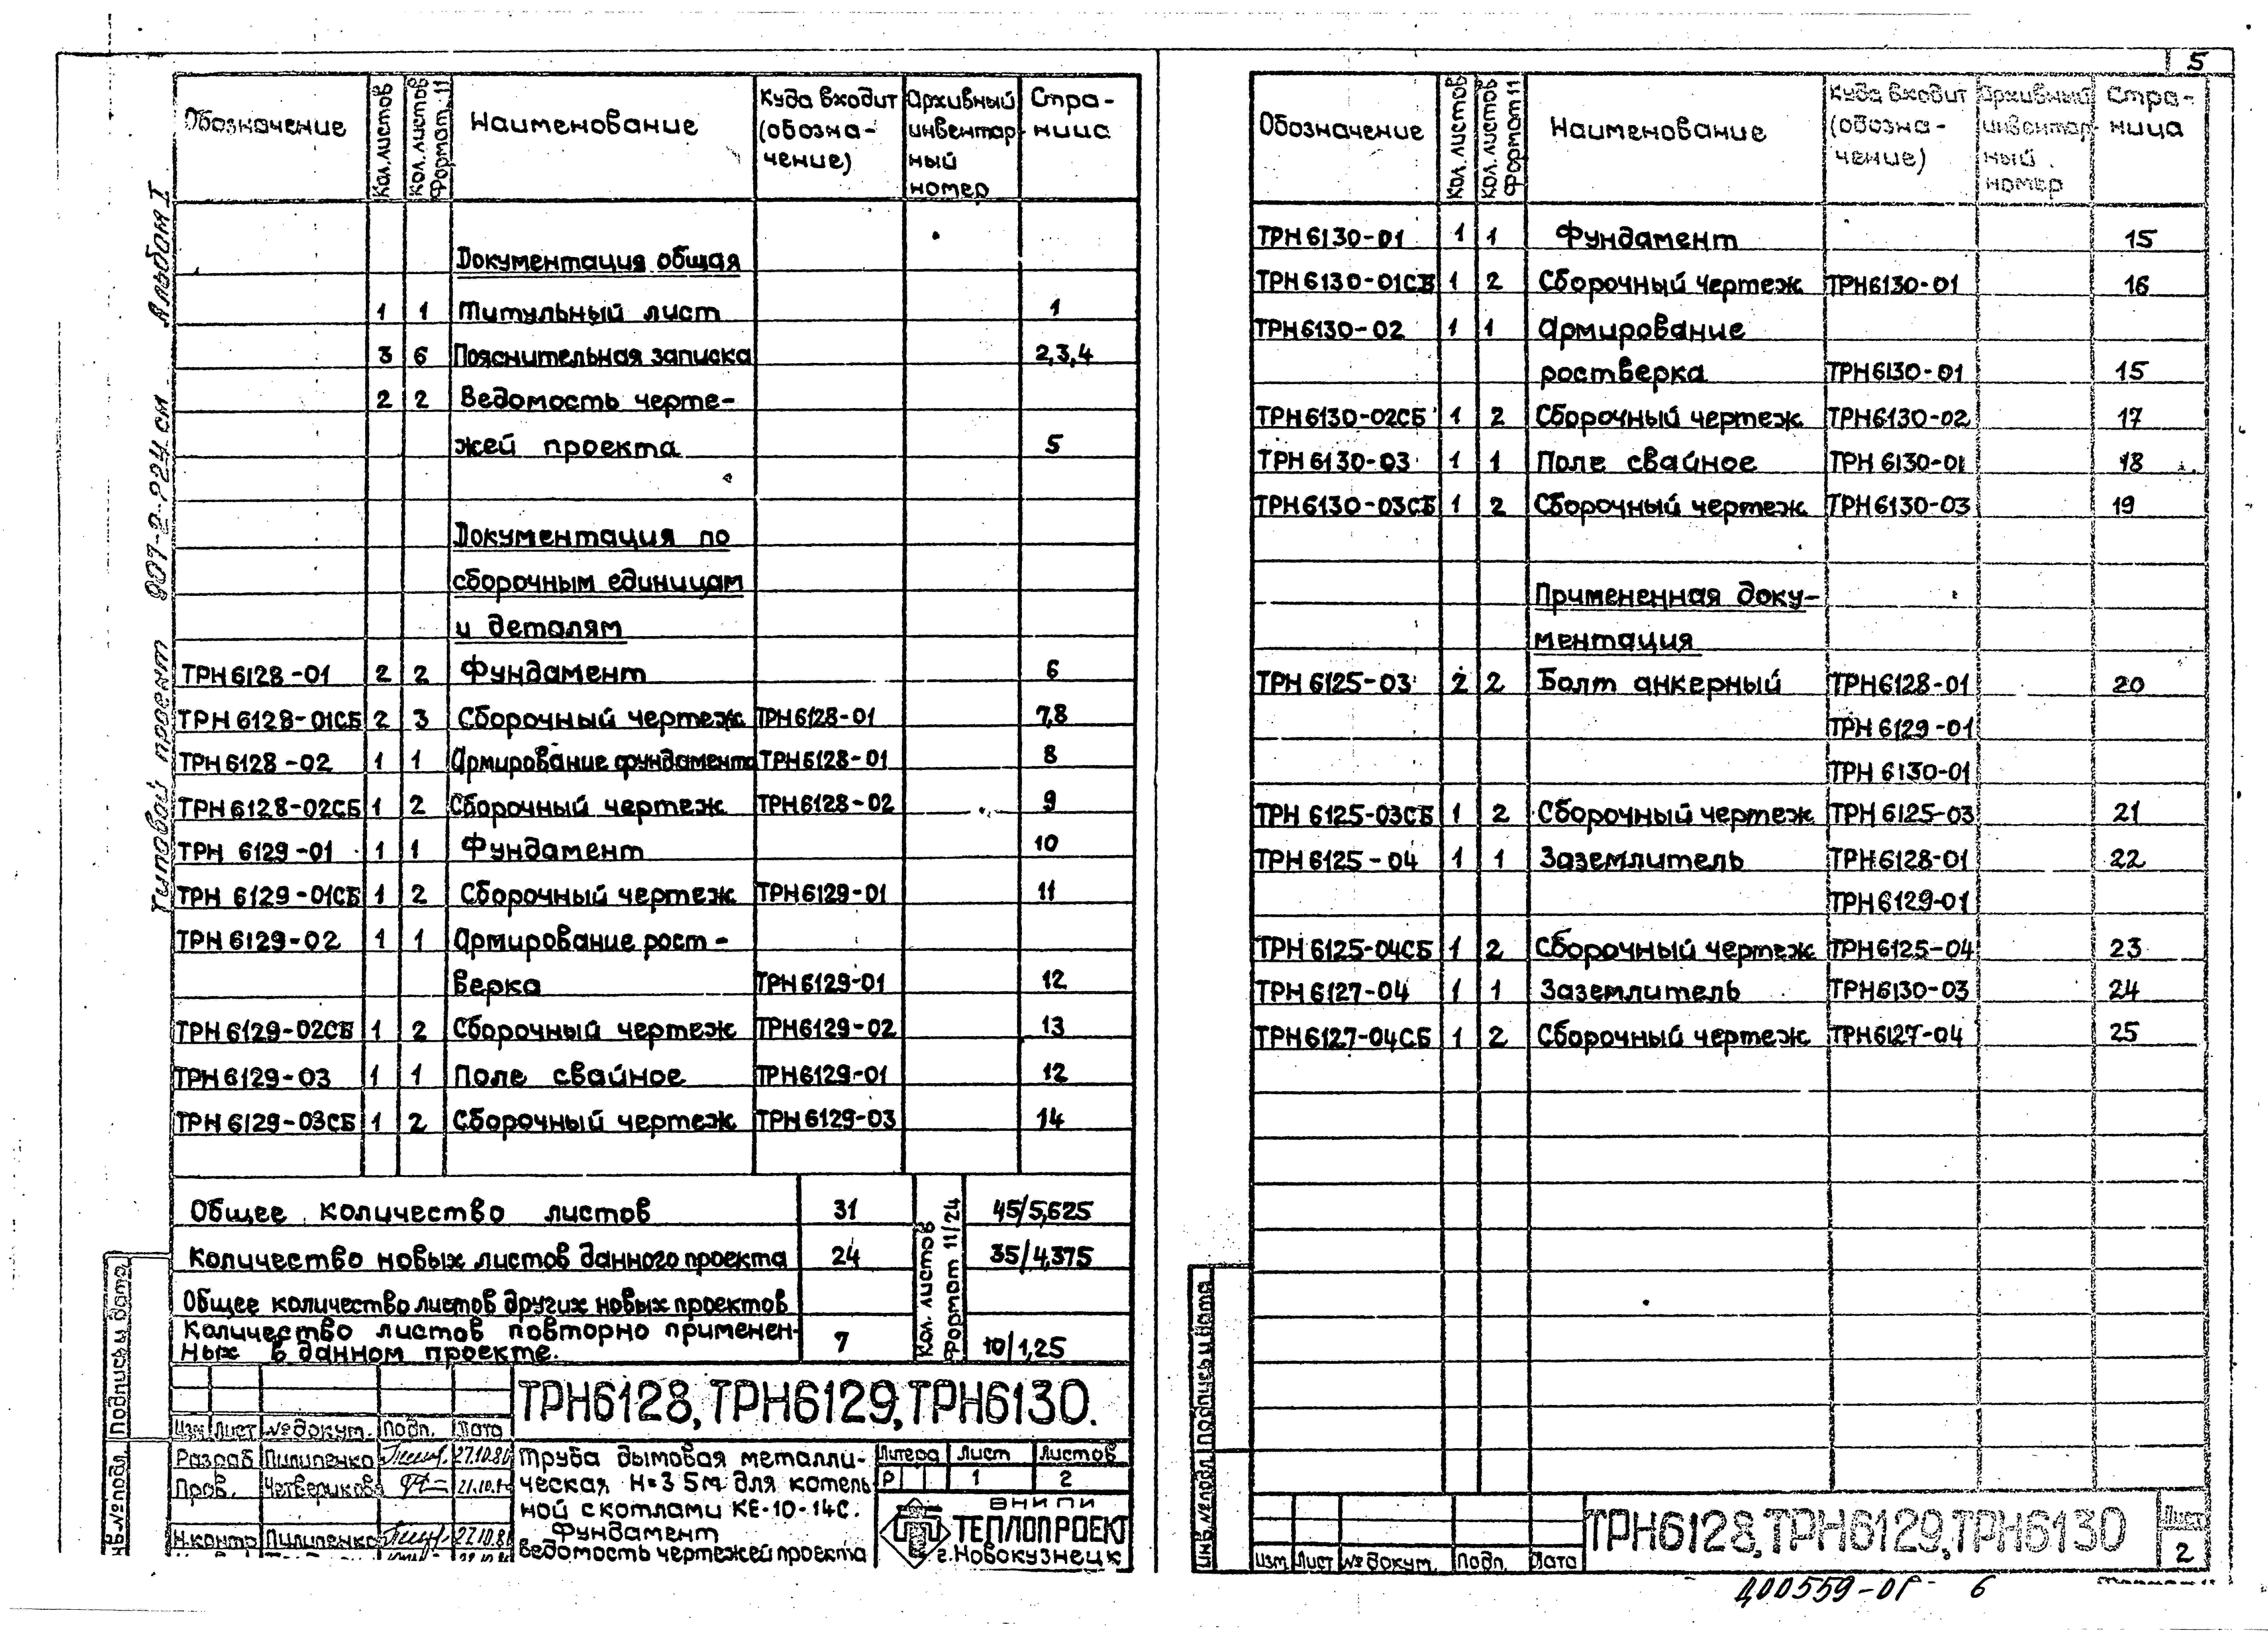 5
Типовой проект 907-2-224 см Альбом I
Обозначение Кол. листов Кол. листов Формат 11 Наименование Куда входит (обозна-чение) Архивный инвентар-ный номер Стра-ница
Документация общая
1 1 Титульный лист 1
3 6 Пояснительная записка 2,3,4
2 2 Ведомость черте-
жей проекта 5
Документация по
сборочным единицам
и деталям
ТРН6128-01 2 2 Фундамент 6
ТРН6128-01СБ 2 3 Сборочный чертеж ТРН6128-01 7,8
ТРН6128-02 1 1 Армирование фундамента ТРН6128-01 8
ТРН6128-02СБ 1 2 Сборочный чертеж ТРН6128-02 9
ТРН 6129-01 1 1 Фундамент 10
ТРН 6129-01СБ 1 2 Сборочный чертеж ТРН6129-01 11
ТРН 6129-02 1 1 Армирование рост-
верка ТРН6129-01 12
ТРН6129-02СБ 1 2 Сборочный чертеж ТРН6129-02 13
ТРН6129-03 1 1 Поле свайное ТРН6129-01 12
ТРН6129-03СБ 1 2 Сборочный чертеж ТРН6129-03 14
Общее количество листов 31 Кол. листов Формат 11/24 45/5,625
Количество новых листов данного проекта 24 35/4,375
Общее количество листов других новых проектов
Количество листов повторно применен-
ных в данном проекте. 7 10/1,25
ТРН6128, ТРН6129, ТРН6130.
Изм Лист № докум. Подп. Дата
Разраб Пилипенко 27.10.80
Пров. Четверикова 21.10.
Н.контр Пилипенко 27.10.80
Труба дымовая металли-
ческая Н=35м для котель
ной с котлами КЕ-10-14С.
Фундамент
Ведомость чертежей проекта
Литера Лист Листов
Р 1 2
ВНИПИ
ТЕПЛОПРОЕКТ
г.Новокузнецк
Подпись и дата
Инв.№ подл.
Обозначение Кол. листов Кол. листов Формат 11 Наименование Куда входит (обозна-чение) Архивный инвентар-ный номер Стра-ница
ТРН6130-01 1 1 Фундамент 15
ТРН6130-01СБ 1 2 Сборочный чертеж ТРН6130-01 16
ТРН6130-02 1 1 Армирование
ростверка ТРН6130-01 15
ТРН6130-02СБ 1 2 Сборочный чертеж ТРН6130-02 17
ТРН6130-03 1 1 Поле свайное ТРН 6130-01 18
ТРН6130-03СБ 1 2 Сборочный чертеж ТРН6130-03 19
Примененная доку-
ментация
ТРН 6125-03 2 2 Болт анкерный ТРН6128-01 20
ТРН 6129-01
ТРН 6130-01
ТРН 6125-03СБ 1 2 Сборочный чертеж ТРН 6125-03 21
ТРН6125-04 1 1 Заземлитель ТРН6128-01 22
ТРН6129-01
ТРН6125-04СБ 1 2 Сборочный чертеж ТРН6125-04 23
ТРН6127-04 1 1 Заземлитель ТРН6130-03 24
ТРН6127-04СБ 1 2 Сборочный чертеж ТРН6127-04 25
Инв.№ подл. Подпись и дата
Изм Лист № докум. Подп. Дата
ТРН6128, ТРН6129, ТРН6130
Лист
2
Д00559-01 6